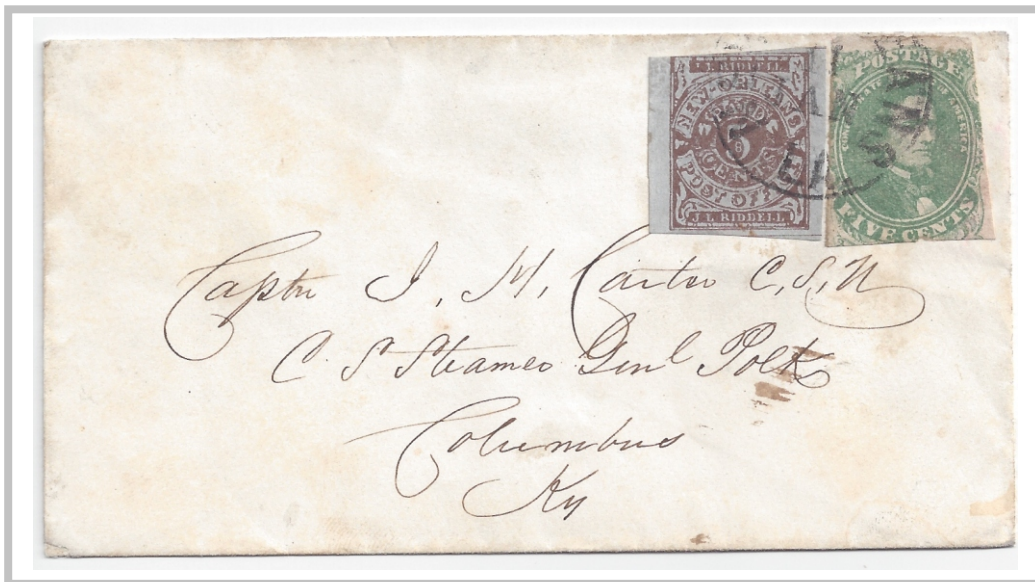 J. L. RIDDELL
NEW-ORLEANS
5
CENTS
POST OFFICE
J. L. RIDDELL
POSTAGE
CONFEDERATE STATES OF AMERICA
FIVE CENTS
Captn J. M. Carter C.S.N
C S Steamer Genl Polk
Columbus
Ky